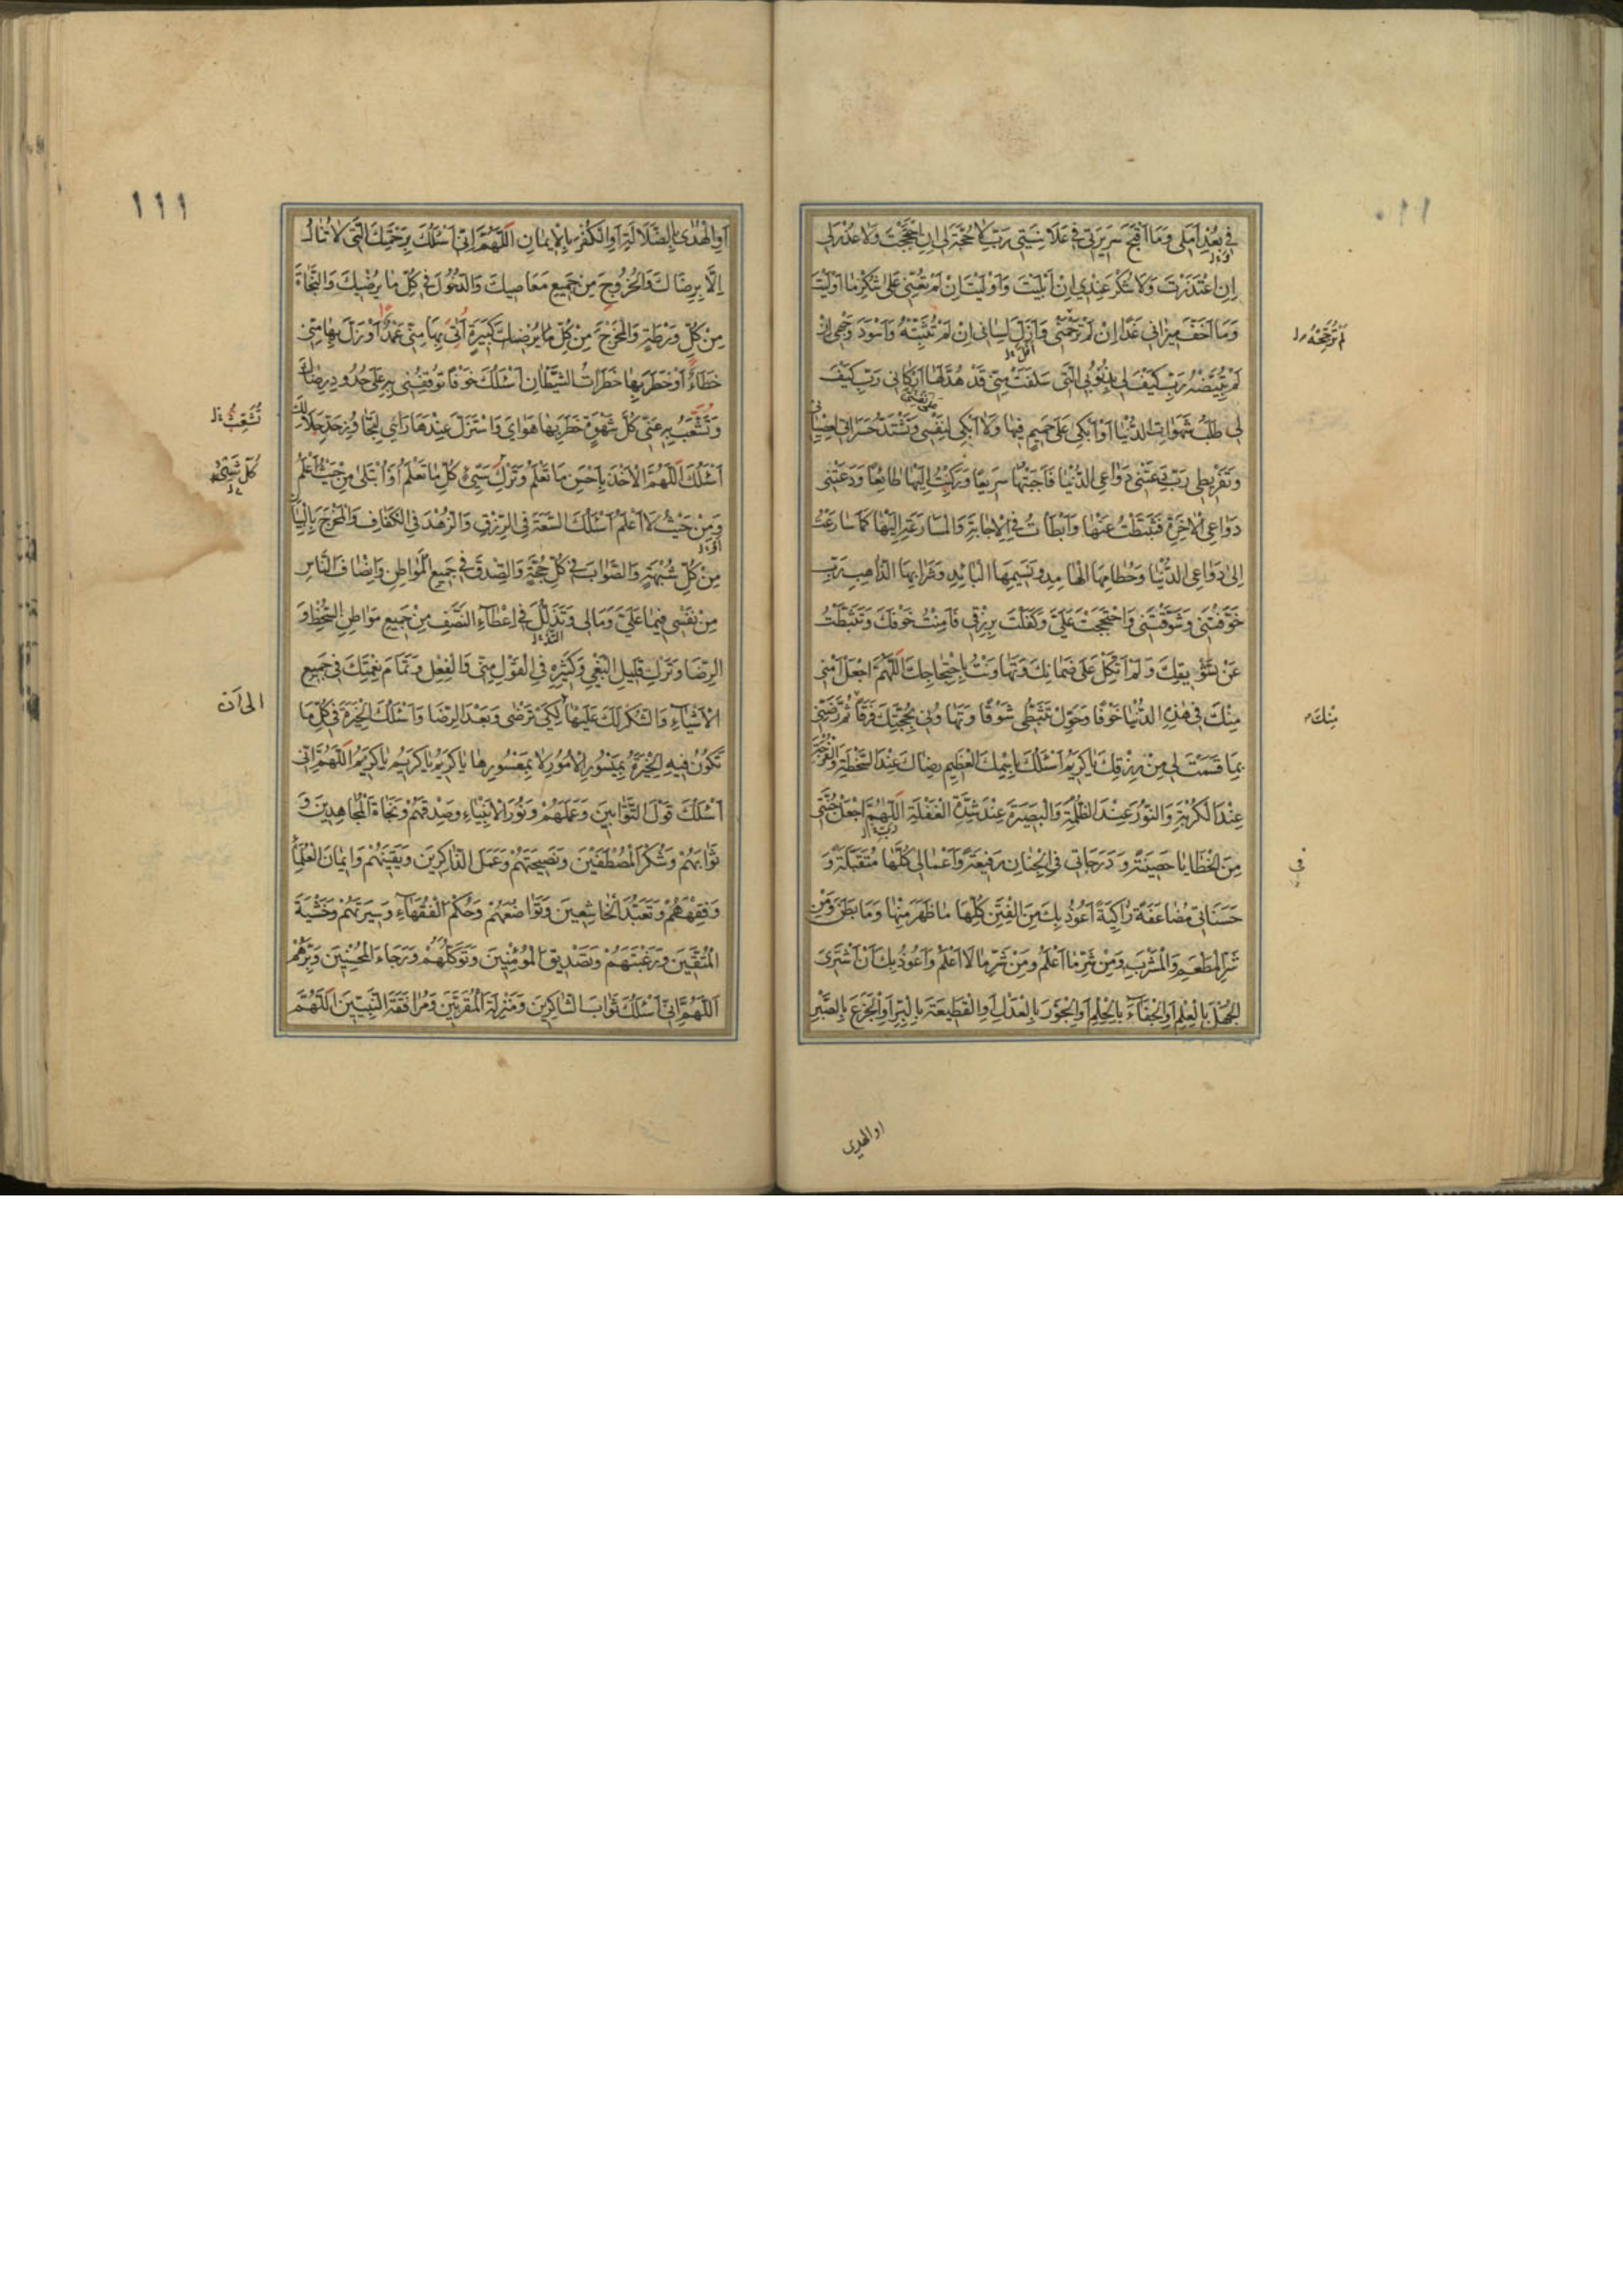 ١١٠
في بُعْدِ اَمَلي وَمَا اَقْبَحَ سَريرَتي في عَلانِيَتي رَبِّ لا حُجَّةَ لي اِنِ احْتَجَجْتُ وَلا عُذْرَ لي
اِنِ اعْتَذَرْتُ وَلا شُكْرَ عِنْدي اِنْ اُبْليتُ وَاُوليتُ اِنْ لَمْ تُعِنّي عَلى شُكْرِ ما اُوليتُ
وَمَا اَخَفَّ ميزاني غَدًا اِنْ لَمْ تُرَجِّحْهُ وَاَزَلَّ لِساني اِنْ لَمْ تُثَبِّتْهُ وَاَسْوَدَ وَجْهي اِنْ
لَمْ تُبَيِّضْهُ رَبِّ كَيْفَ لي بِذُنُوبي الَّتي سَلَفَتْ مِنّي قَدْ هُدَّ لَها اَرْكاني رَبِّ كَيْفَ
لي طَلَبُ شَهَواتِ الدُّنْيا اَوْ اَبْكي عَلى حَميمٍ فيها وَلا اَبْكي لِنَفْسي وَتَشْتَدُّ حَسَراتي لِعِصْياني
وَتَفْريطي رَبِّ دَعَتْني دَواعِي الدُّنْيا فَاَجَبْتُها سَريعًا وَرَكَنْتُ اِلَيْها طائِعًا وَدَعَتْني
دَواعِي الْاخِرَةِ فَتَثَبَّطْتُ عَنْها وَاَبْطَأْتُ فِي الْاِجابَةِ وَالْمُسارَعَةِ اِلَيْها كَما سارَعْتُ
اِلى دَواعِي الدُّنْيا وَحُطامِهَا الْهامِدِ وَنَسيمِهَا الْبائِدِ وَشَرابِهَا الذّاهِبِ رَبِّ
خَوَّفْتَني وَشَوَّقْتَني وَاحْتَجَجْتَ عَلَيَّ وَكَفَلْتَ بِرِزْقي فَاَمِنْتُ خَوْفَكَ وَتَثَبَّطْتُ
عَنْ تَشْويقِكَ وَلَمْ اَتَّكِلْ عَلى ضَمانِكَ وَتَهاوَنْتُ بِاحْتِجاجِكَ اَللّهُمَّ اجْعَلْ اَمْني
مِنْكَ في هذِهِ الدُّنْيا خَوْفًا وَحَوِّلْ تَثَبُّطي شَوْقًا وَتَهاوُني بِحُجَّتِكَ فَرَقًا ثُمَّ رَضِّني
بِما قَسَمْتَ لي مِنْ رِزْقِكَ يا كَريمُ اَسْئَلُكَ بِاسْمِكَ الْعَظيمِ رِضاكَ عِنْدَ السَّخْطَةِ وَالْفُرْجَةَ
عِنْدَ الْكُرْبَةِ وَالنُّورَ عِنْدَ الظُّلْمَةِ وَالْبَصيرَةَ عِنْدَ شِدَّةِ الْغَفْلَةِ اَللّهُمَّ اجْعَلْ جُنَّتي
مِنَ الْخَطايا حَصينَةً وَدَرَجاتي فِي الْجِنانِ رَفيعَةً وَاَعْمالي كُلَّها مُتَقَبَّلَةً وَ
حَسَناتي مُضاعَفَةً زاكِيَةً اَعُوذُ بِكَ مِنَ الْفِتَنِ كُلِّها ما ظَهَرَ مِنْها وَما بَطَنَ وَمِنْ
شَرِّ الْمَطْعَمِ وَالْمَشْرَبِ وَمِنْ شَرِّ ما اَعْلَمُ وَمِنْ شَرِّ ما لا اَعْلَمُ وَاَعُوذُ بِكَ اَنْ اَشْتَرِيَ
الْجَهْلَ بِالْعِلْمِ اَوِ الْجَفاءَ بِالْحِلْمِ اَوِ الْجَوْرَ بِالْعَدْلِ اَوِ الْقَطيعَةَ بِالْبِرِّ اَوِ الْجَزَعَ بِالصَّبْرِ
اوالهدى
لَمْ تُرَجِّحْهُ
مِنْكَ
في
١١١
اَوِ الْهُدى بِالضَّلالَةِ اَوِ الْكُفْرَ بِالْايمانِ اَللّهُمَّ اِنّي اَسْئَلُكَ بِرَحْمَتِكَ الَّتي لا تُنالُ
اِلّا بِرِضاكَ وَالْخُرُوجَ مِنْ جَميعِ مَعاصيكَ وَالدُّخُولَ في كُلِّ ما يُرْضيكَ وَالنَّجاةَ
مِنْ كُلِّ وَرْطَةٍ وَالْمَخْرَجَ مِنْ كُلِّ كَبيرَةٍ اَتى بِها مِنّي عَمْدٌ اَوْ زَلَّ بِها مِنّي
خَطَاءٌ اَوْ خَطَرَ بِها خَطَراتُ الشَّيْطانِ اَسْئَلُكَ خَوْفًا تُوقِفُني بِهِ عَلى حُدُودِ رِضاكَ
وَتُشَعِّبُ بِهِ عَنّي كُلَّ شَهْوَةٍ خَطَرَ بِها هَوايَ وَاسْتَزَلَّ عِنْدَها رَأْيي لِتُجاوِزَ حَدَّ حَلالِكَ
اَسْئَلُكَ اَللّهُمَّ الْاَخْذَ بِاَحْسَنِ ما تَعْلَمُ وَتَرْكَ سَيِّئِ كُلِّ ما تَعْلَمُ اَوْ اُبْتَلى مِنْ حَيْثُ اَعْلَمُ
وَمِنْ حَيْثُ لا اَعْلَمُ اَسْئَلُكَ السَّعَةَ فِي الرِّزْقِ وَالزُّهْدَ فِي الْكَفافِ وَالْمَخْرَجَ بِالْبَيانِ
مِنْ كُلِّ شُبْهَةٍ وَالصَّوابَ في كُلِّ حُجَّةٍ وَالصِّدْقَ في جَميعِ الْمَواطِنِ وَاِنْصافَ النّاسِ
مِنْ نَفْسي فيما عَلَيَّ وَمالي وَتَذَلُّلَ في اِعْطاءِ النَّصَفِ مِنْ جَميعِ مَواطِنِ السَّخَطِ وَ
الرِّضا وَتَرْكَ قَليلِ الْبَغْيِ وَكَثيرِهِ فِي الْقَوْلِ مِنّي وَالْفِعْلِ وَتَمامَ نِعْمَتِكَ في جَميعِ
الْاَشْياءِ وَالشُّكْرَ لَكَ عَلَيْها لِكَيْ تَرْضى وَبَعْدَ الرِّضا وَاَسْئَلُكَ الْخِيَرَةَ في كُلِّ ما
تَكُونُ فيهِ الْخِيَرَةُ بِمَيْسُورِ الْاُمُورِ لا بِمَعْسُورِها يا كَريمُ يا كَريمُ يا كَريمُ اَللّهُمَّ اِنّي
اَسْئَلُكَ قَوْلَ التَّوّابينَ وَعَمَلَهُمْ وَنُورَ الْاَنْبِياءِ وَصِدْقَهُمْ وَنَجاةَ الْمُجاهِدينَ وَ
ثَوابَهُمْ وَشُكْرَ الْمُصْطَفَيْنَ وَنَصيحَتَهُمْ وَعَمَلَ الذّاكِرينَ وَيَقينَهُمْ وَايمانَ الْعُلَماءِ
وَفِقْهَهُمْ وَتَعَبُّدَ الْخاشِعينَ وَتَواضُعَهُمْ وَحُكْمَ الْفُقَهاءِ وَسيرَتَهُمْ وَخَشْيَةَ
الْمُتَّقينَ وَرَغْبَتَهُمْ وَتَصْديقَ الْمُؤْمِنينَ وَتَوَكُّلَهُمْ وَرَجاءَ الْمُحْسِنينَ وَبِرَّهُمْ
اَللّهُمَّ اِنّي اَسْئَلُكَ ثَوابَ الشّاكِرينَ وَمَنْزِلَةَ الْمُقَرَّبينَ وَمُرافَقَةَ النَّبِيّينَ اَللّهُمَّ
تُشَعِّبُ
كُلِّ شَيْءٍ
الى ان